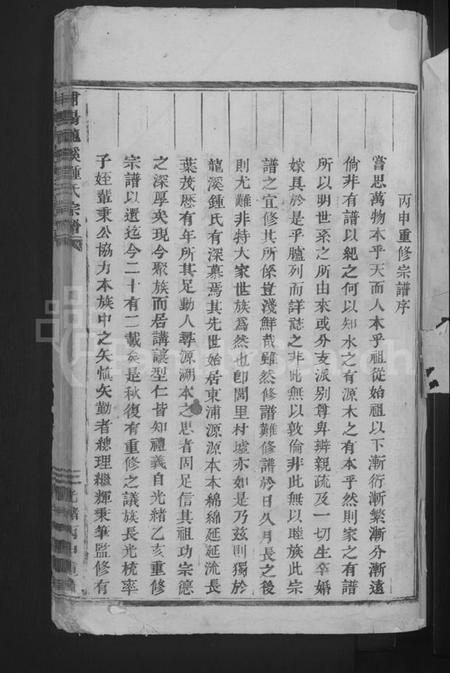 丙申重修宗譜序
嘗思萬物本乎天而人本乎祖從始祖以下漸衍漸繁漸分漸遠
倘非有譜以紀之何以知水之有源木之有本乎然則家之有譜
所以明世系之所由來或分支派别尊卑辨親疏及一切生卒婚
嫁具於是乎臚列而詳誌之非此無以敦倫非此無以睦族此宗
譜之宜修其所係豈淺鮮哉雖然修譜難修譜於日久月長之後
則尤難非特大家世族為然也即閭里村墟亦如是乃茲則獨於
龍溪鍾氏有深慕焉其先世始居東浦源源本本綿綿延延流長
葉茂歷有年所其足動人尋源溯本之思者固足信其祖功宗德
之深厚矣現今聚族而居講讓型仁皆知禮義自光緒乙亥重修
宗譜以還迄今二十有二載矣是秋復有重修之議族長光梳率
子姪輩秉公協力本族中之矢慎矢勤者總理繼輝秉筆監修有
浦陽龍溪鍾氏宗譜
光緒丙申重